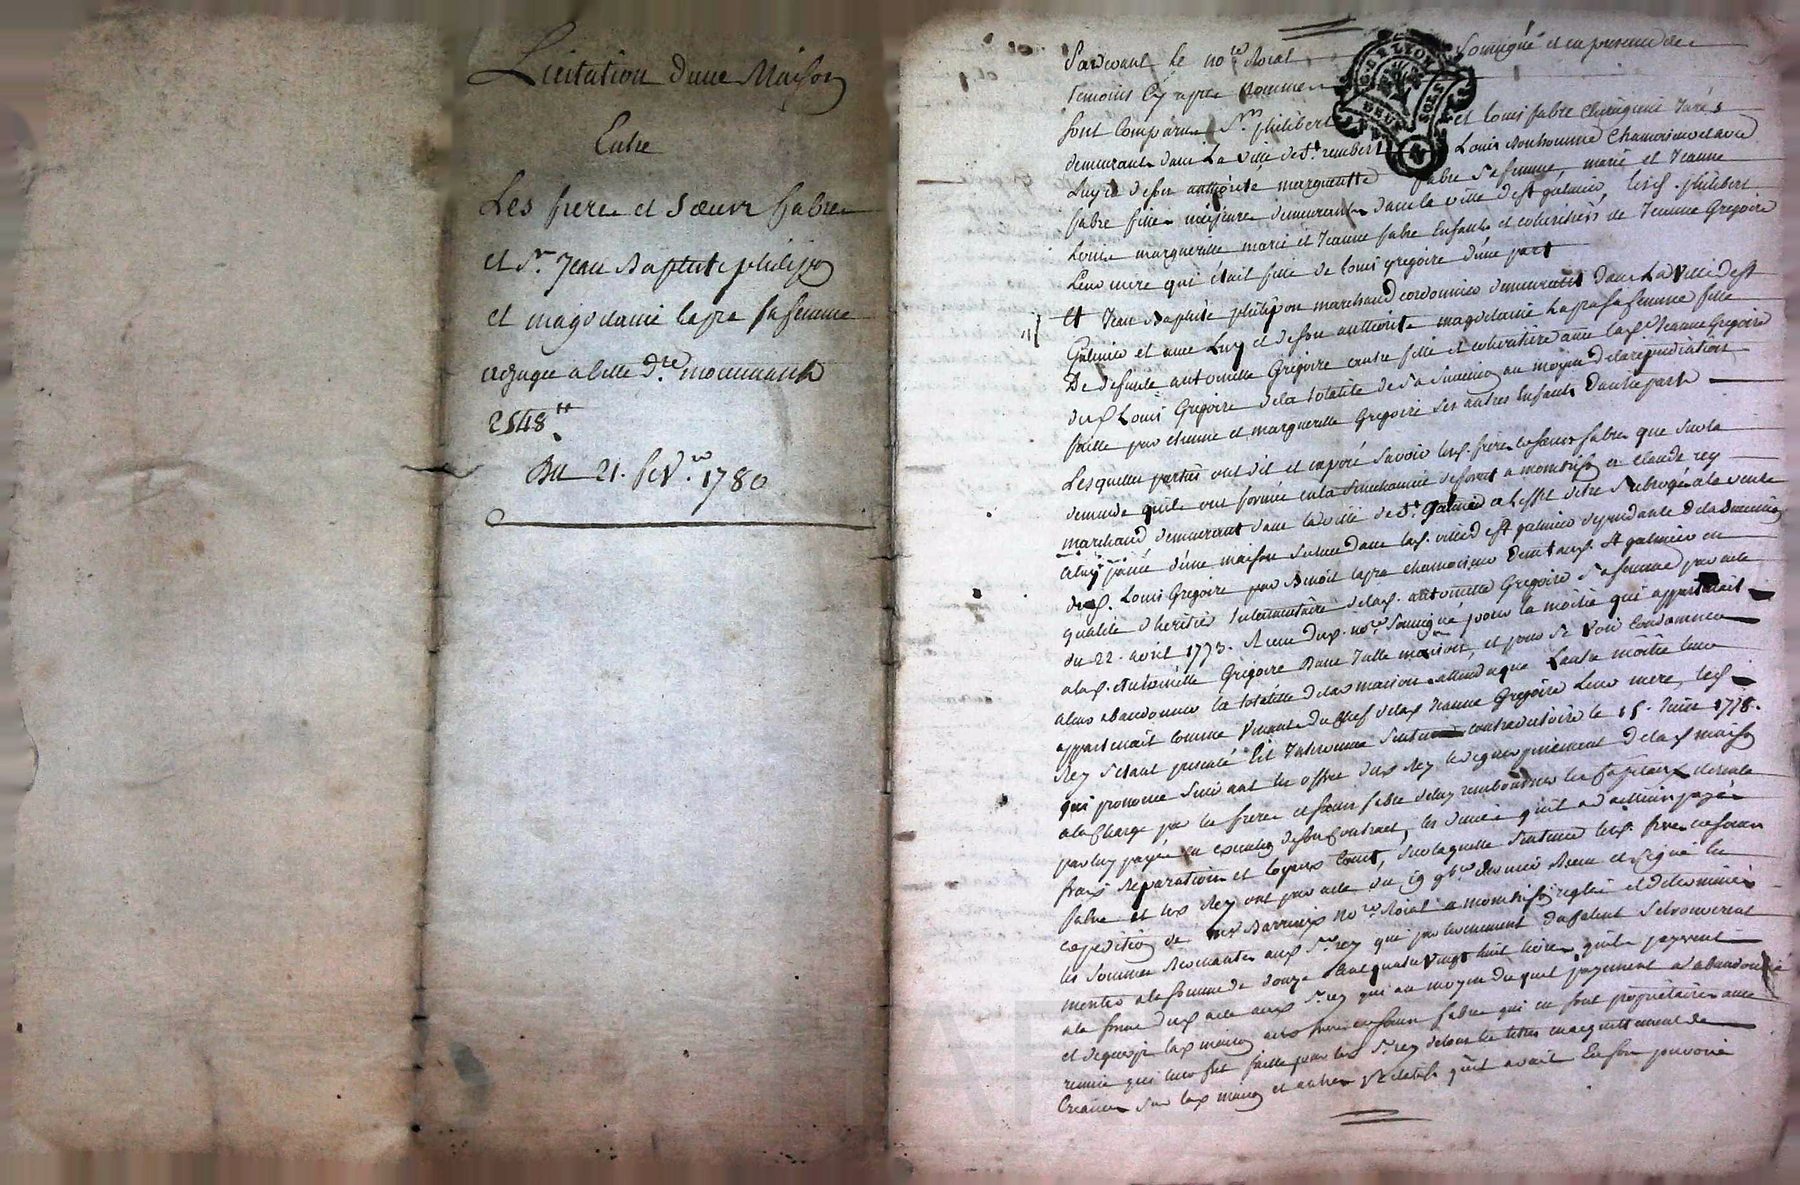 Licitation d'une Maison
Entre
Les frere et Soeur fabre
et Sr. Jean Baptiste philippon
et magdelaine lapra sa femme
adjugée a celle dre moienant
2548tt.
Du 21. fevr. 1780
Pardevant le nore. Roial Soussigné et en presence de
temoins cy apres nommes
Sont comparus Srs. philibert et louis fabre Chirurgiens Jurés
demeurants dans la ville de St. rembert Louis bonhomme Chamoiseur et avec
Luy et de son authorité margueritte fabre sa femme, marie et Jeanne
fabre filles majeures demeurantes dans la ville de St galmier, lesd. philibert
Louis marguerite marie et Jeanne fabre Enfants et coheritiers de Jeanne Gregoire
Leur mere qui était fille de louis gregoire d'une part
Et Jean Baptiste philipon marchand cordonnier demeurant dans la ville de St
Galmier et avec Luy et de son authorité magdelaine lapra sa femme fille
De defunte antoinette Gregoire autre fille et coheritiere avec lad. Jeanne Gregoire
dud. Louis Gregoire de la totalité de sa Succession au moyen de la repudiation
faitte par etienne et marguerite Gregoire ses autres Enfants d'autre part
Lesquelles parties ont dit et exposé Savoir lesd. frere et soeurs fabre que sur la
demande qu'ils ont formée en la Senechaussée de forest a montbrison a Claude rey
marchand demeurant dans la ville de St. Galmier a l'effet d'etre subrogés a la vente
a luy passée d'une maison située dans lad. ville de St galmier dependante de la Succession
dud. Louis Gregoire par Benoit lapra chamoiseur dud. St galmier en
qualité d'heritier testamentaire de lad. antoinette Gregoire sa femme par acte
du 22. avril 1773. Recu dud. nore. Soussigné pour la moitié qui appartenait
a lad. Antoinette Gregoire Dans Telle maison, et pour se voir Condamner
a leur abandonner la totalité de lad maison attendu que l'autre moitié leur
appartenait comme venant du Chef de lad Jeanne Gregoire Leur mere, led.
Rey s'etant presenté Est Intervenue Sentence contradictoire le 15. Juin 1778.
qui prononce Suivant les offres dud. Rey le deguerpissement de lad maison
a la Charge par les freres et soeurs fabre de luy rembourser les Capitaux
par luy payés en execution de son Contract, les qu'il a payés
frais Reparations et loyaux Couts, sur laquelle Sentence lesd. frere et soeurs
fabre et led Rey ont par acte du 19 9bre dernier Recu et Signé en
expedition de me Barrieux nore. Roial a montbrison reglé et determiné
les sommes Revenantes aud Sr. rey qui par l'evenement
a la somme de douze Cent quatre vingt huit livres qu'ils payerent
a la forme dud acte aud Sr. rey qui au moyen duquel payement a abandonné
et deguerpi lad maison aux freres et soeurs fabre qui en sont propriétaires avec
remise qui leur fut faitte par led Sr. rey de tous les titres
Creances sur lad maison et autres y Relatifs qu'il avait En son pouvoir